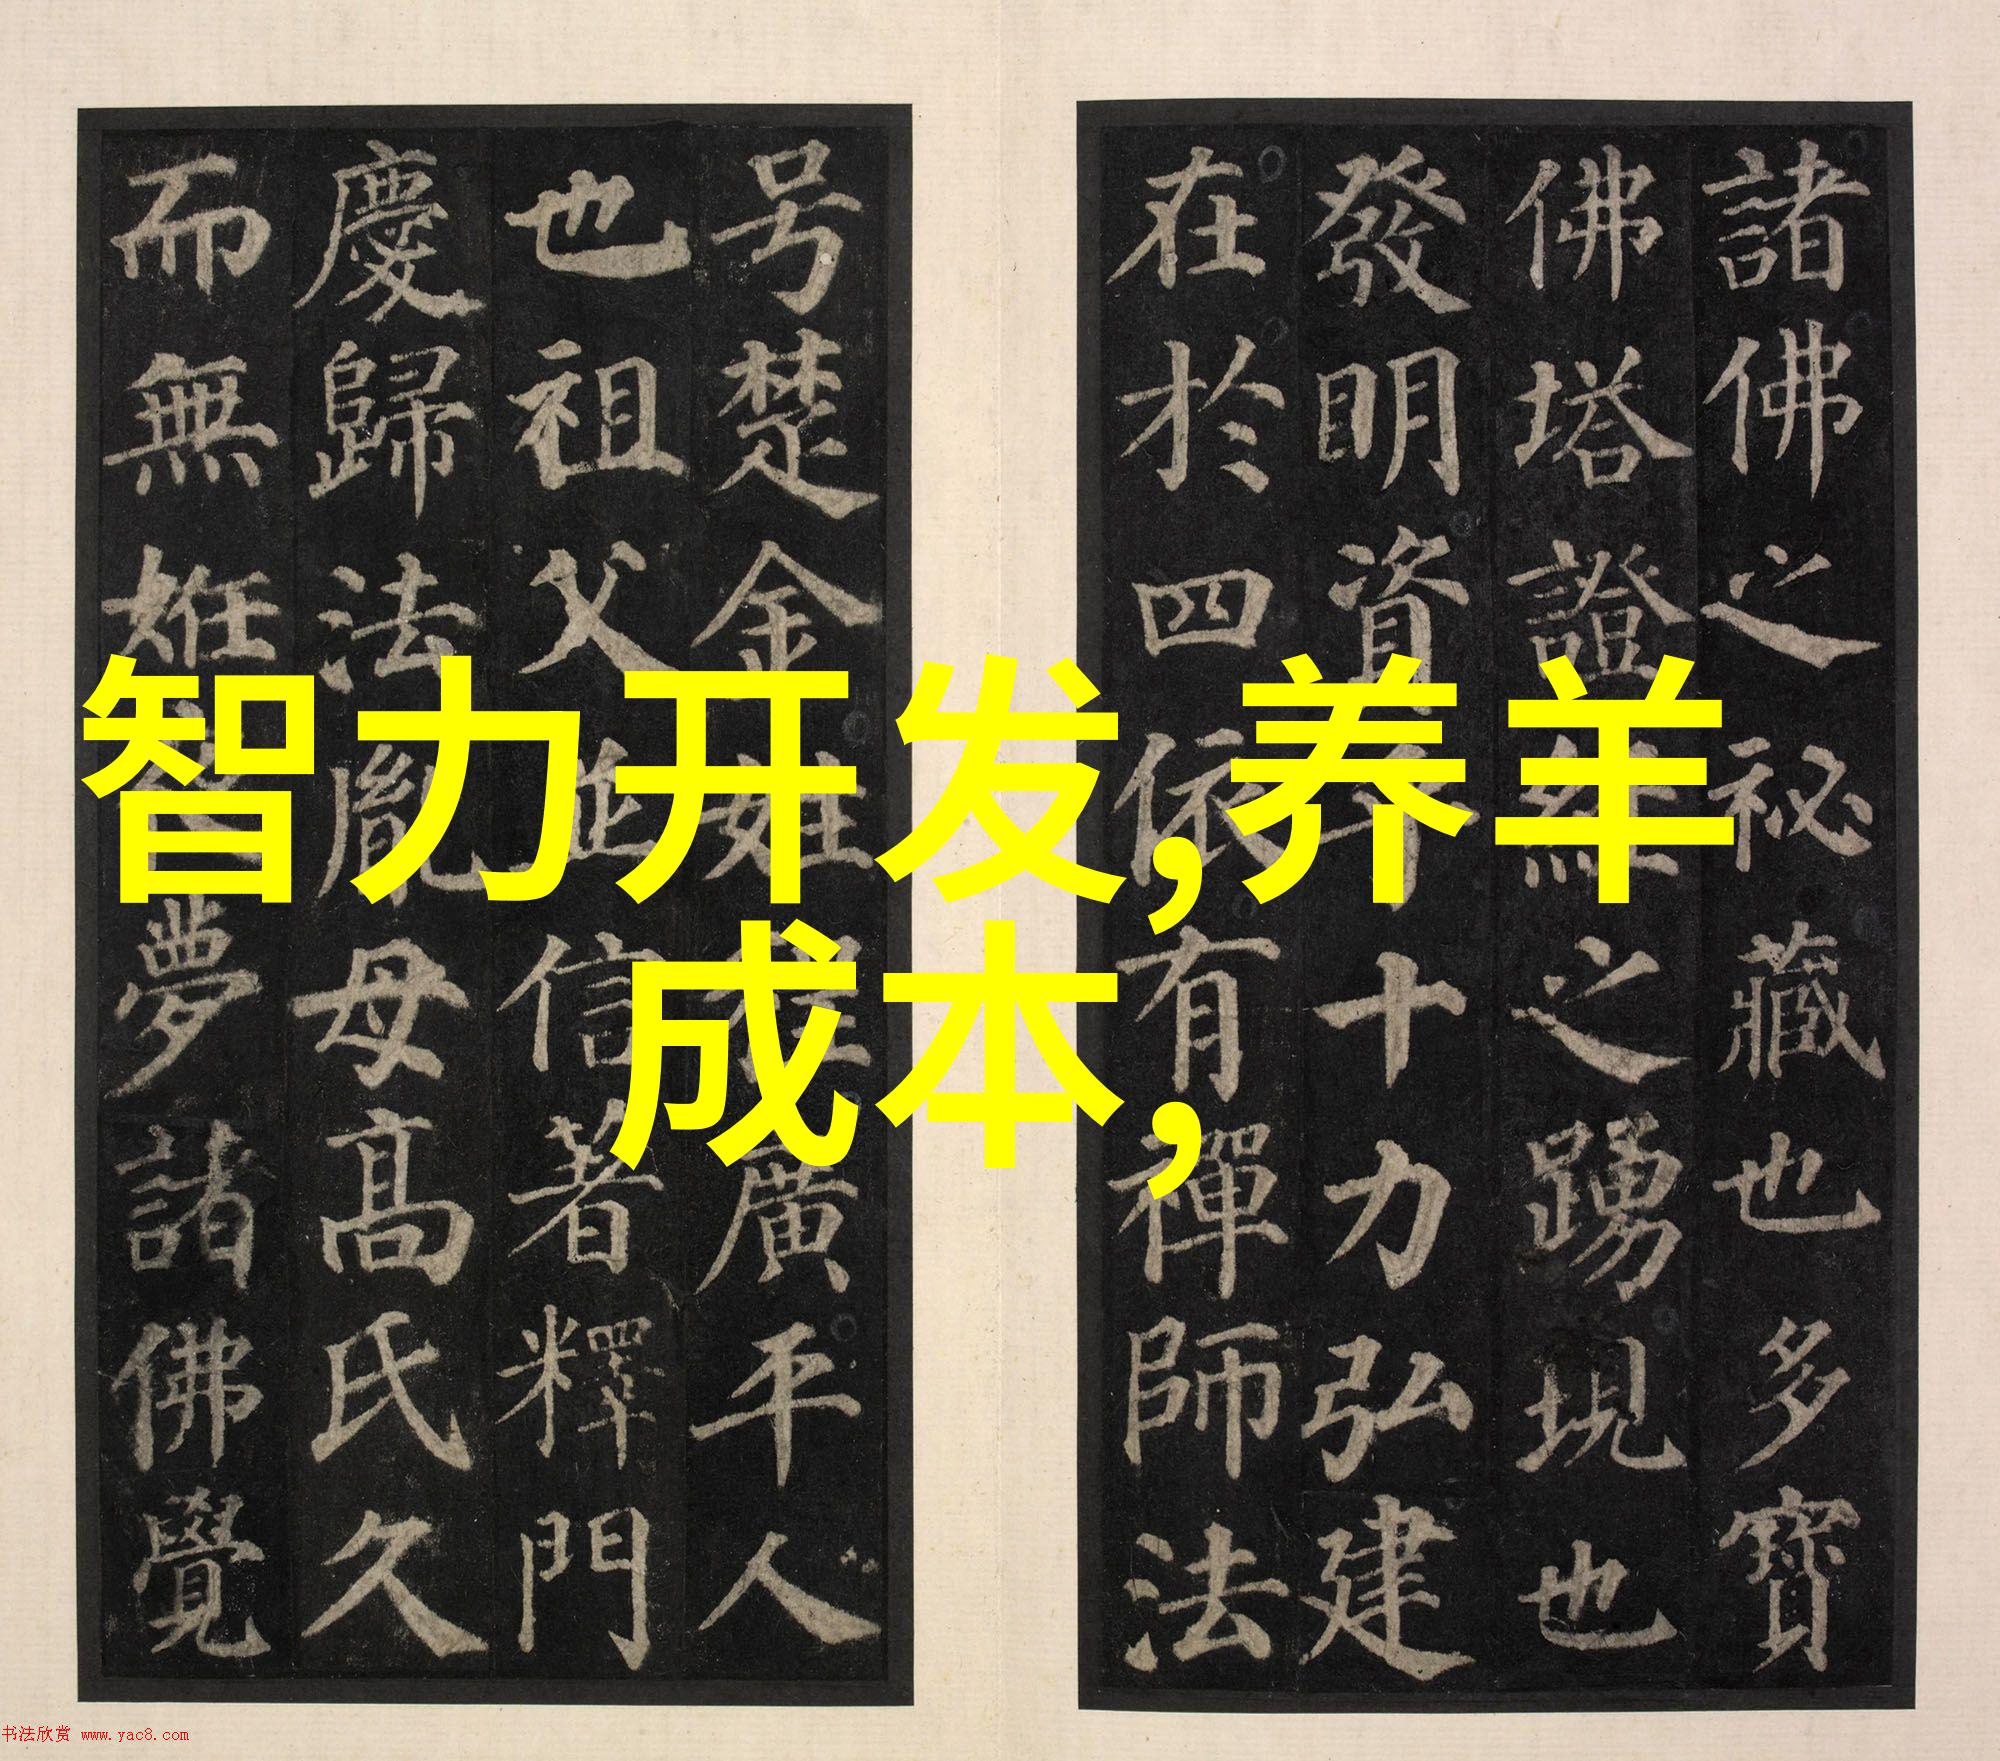 諸佛之祕藏也多寶
佛塔證經之踴現也
發明資乎十力弘建
在於四依有禪師法
号楚金姓程廣平人
也祖父並信著釋門
慶歸法胤母高氏久
而無姙夢諸佛覺
智力开发,养羊
成本,
书法欣赏 www.yac8.com